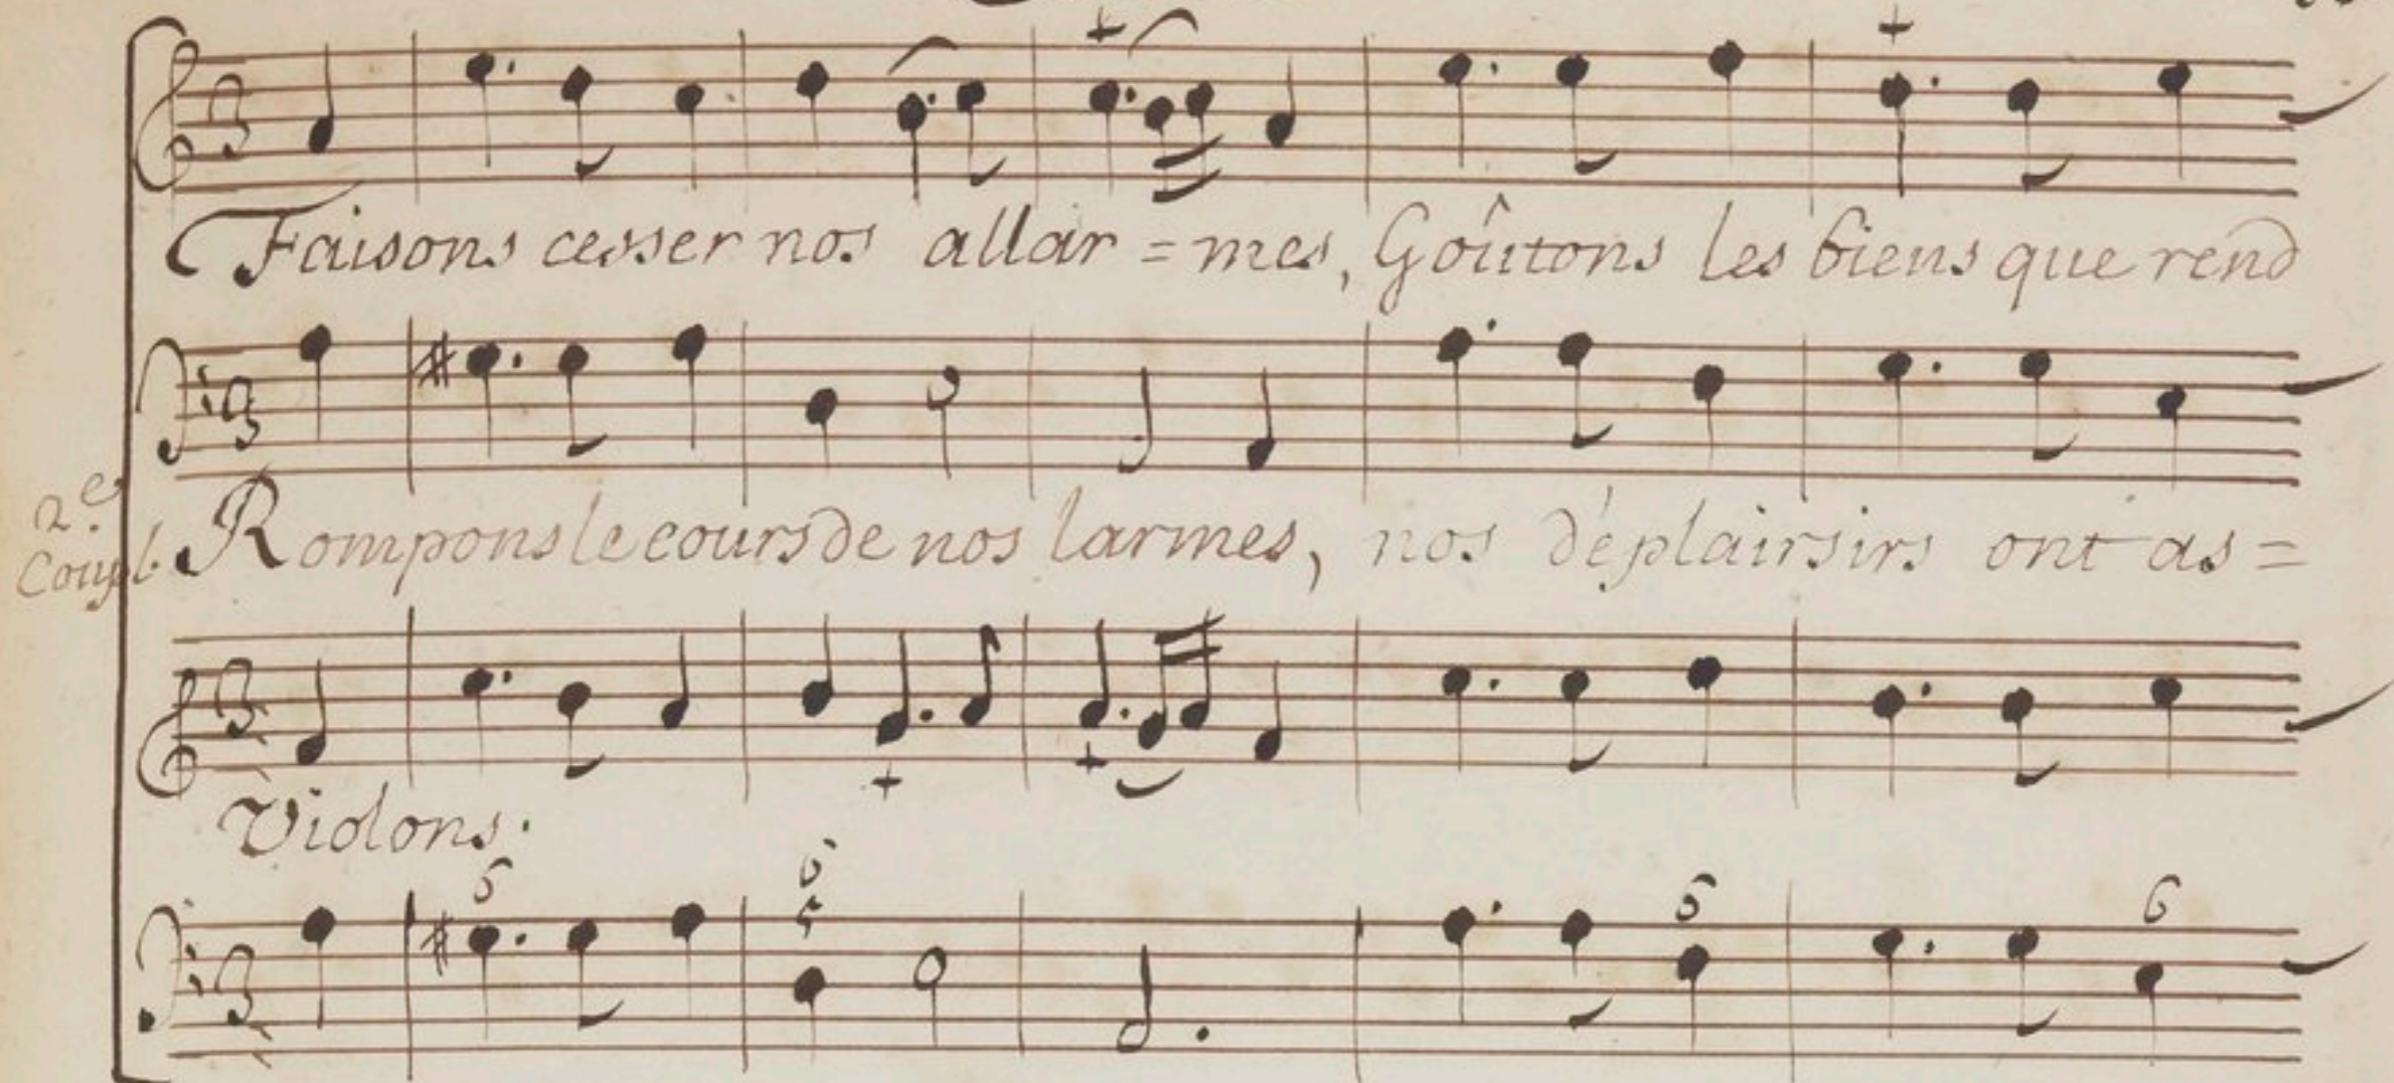 Faisons cesser nos allar=mes, Goûtons les biens que rend
2.e Coupl. Rompons le cours de nos larmes, nos déplairsirs ont as=
Violons.
6 6 6 6
5